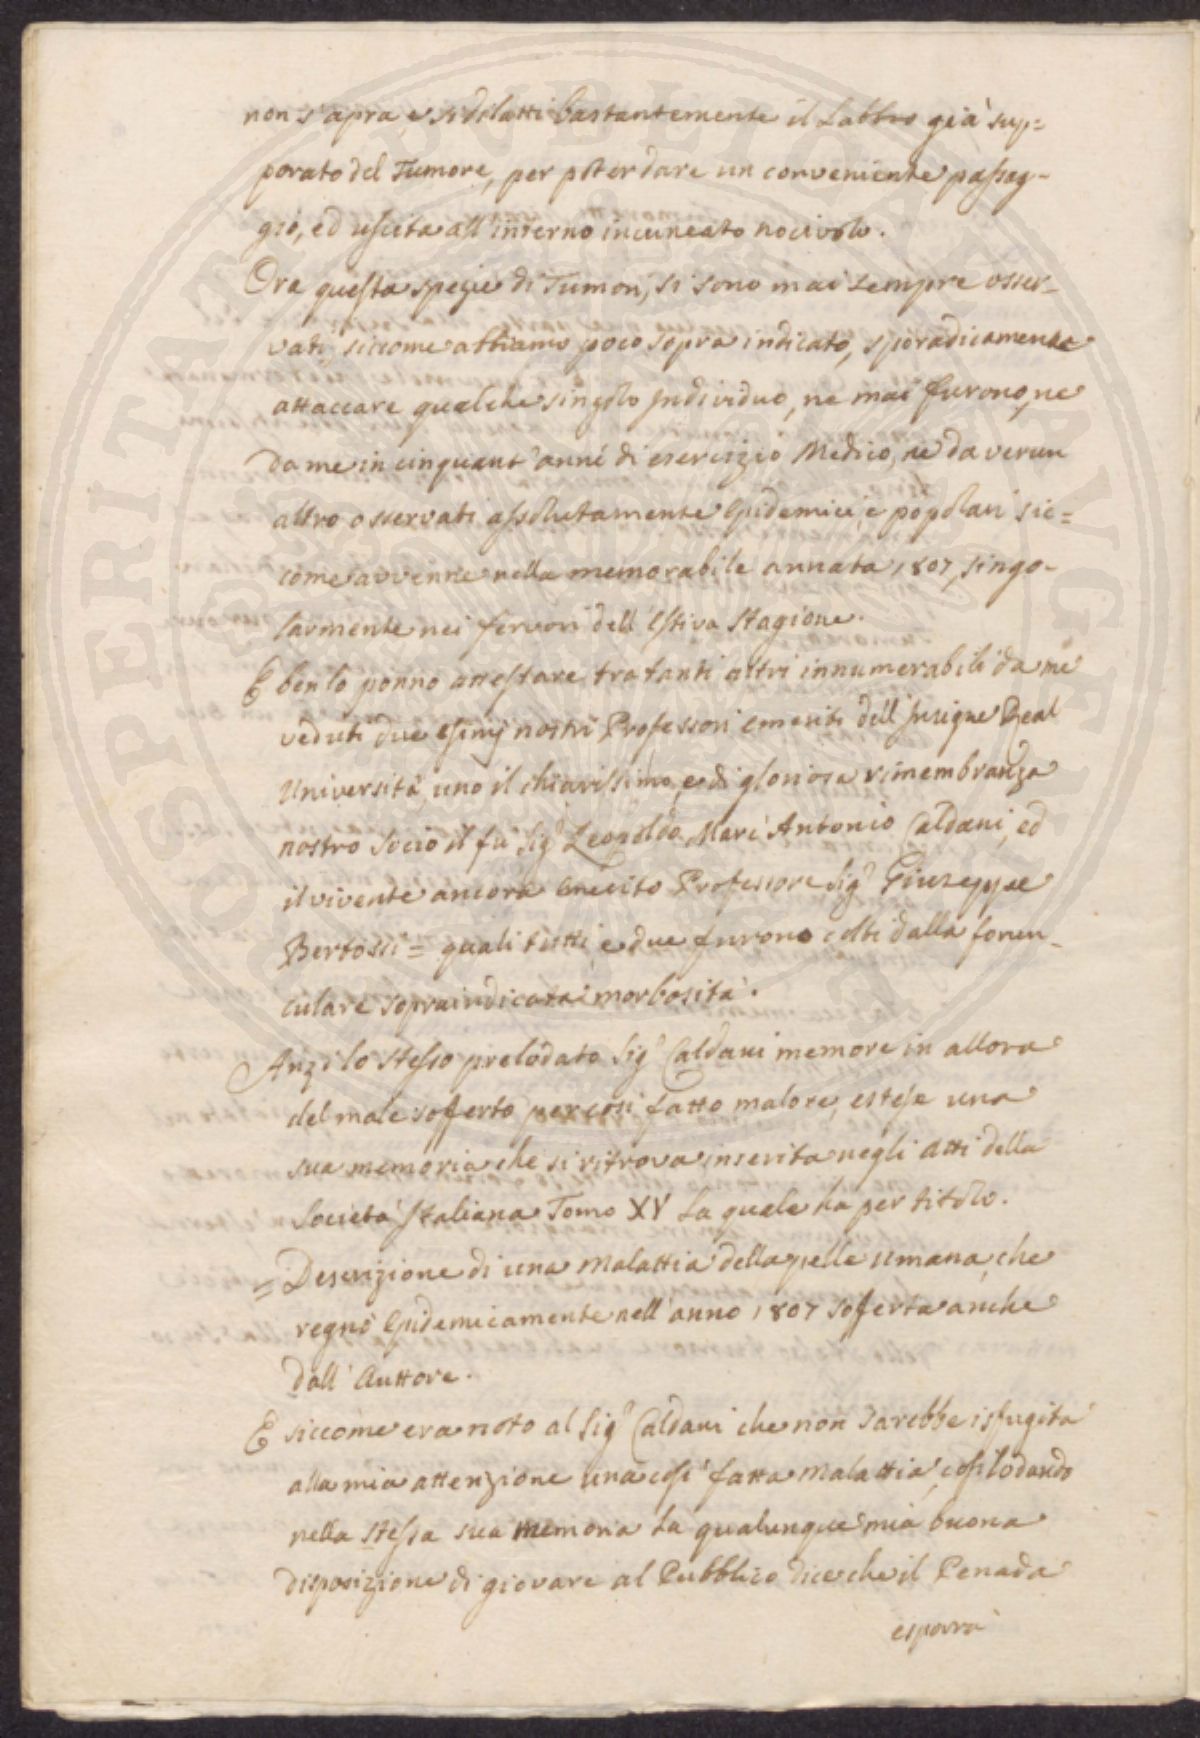 non s'apra, e si dilatti bastantemente il Labbro già sup=
porato del Tumore, per poter dare un conveniente passag-
gio, ed uscita all'interno incuneato nocivolo.
Ora questa spezie di Tumori, si sono mai sempre osser-
vati, siccome abbiamo poco sopra indicato, sporadicamente
attaccare qualche singolo Individuo, ne mai furono, ne
da me in cinquant'anni di esercizio Medico, ne da verun
altro osservati assolutamente Epidemici, e popolari sic=
come avvenne nella memorabile annata 1807, singo-
larmente nei fervori dell'Estiva Stagione.
E ben lo ponno attestare tra tanti altri innumerabili da me
veduti due esimj nostri Professori emeriti dell'Insigne Real
Università, uno il chiarissimo, e di gloriosa rimembranza
nostro Socio il fù Sig.r Leopoldo Marc'Antonio Caldani, ed
il vivente ancora emerito Professore Sig.r Giuseppe
Bertossi = quali tutti e due furono colti dalla forun-
culare sopraindicata morbosità.
Anzi lo stesso prelodato Sig.r Caldani memore in allora
del male sofferto per così fatto malore, estese una
sua memoria che si ritrova inserita negli Atti della
Società Italiana Tomo XV La quale ha per titolo.
= Descrizione di una Malattia della pelle umana, che
regnò Epidemicamente nell'anno 1807 sofferta anche
dall'Auttore.
E siccome era noto al Sig.r Caldani che non sarebbe isfugita
alla mia attenzione una così fatta Malattia, così lodando
nella stessa sua memoria La qualunque mia buona
disposizione di giovare al Pubblico dice che il Penada
esporrà